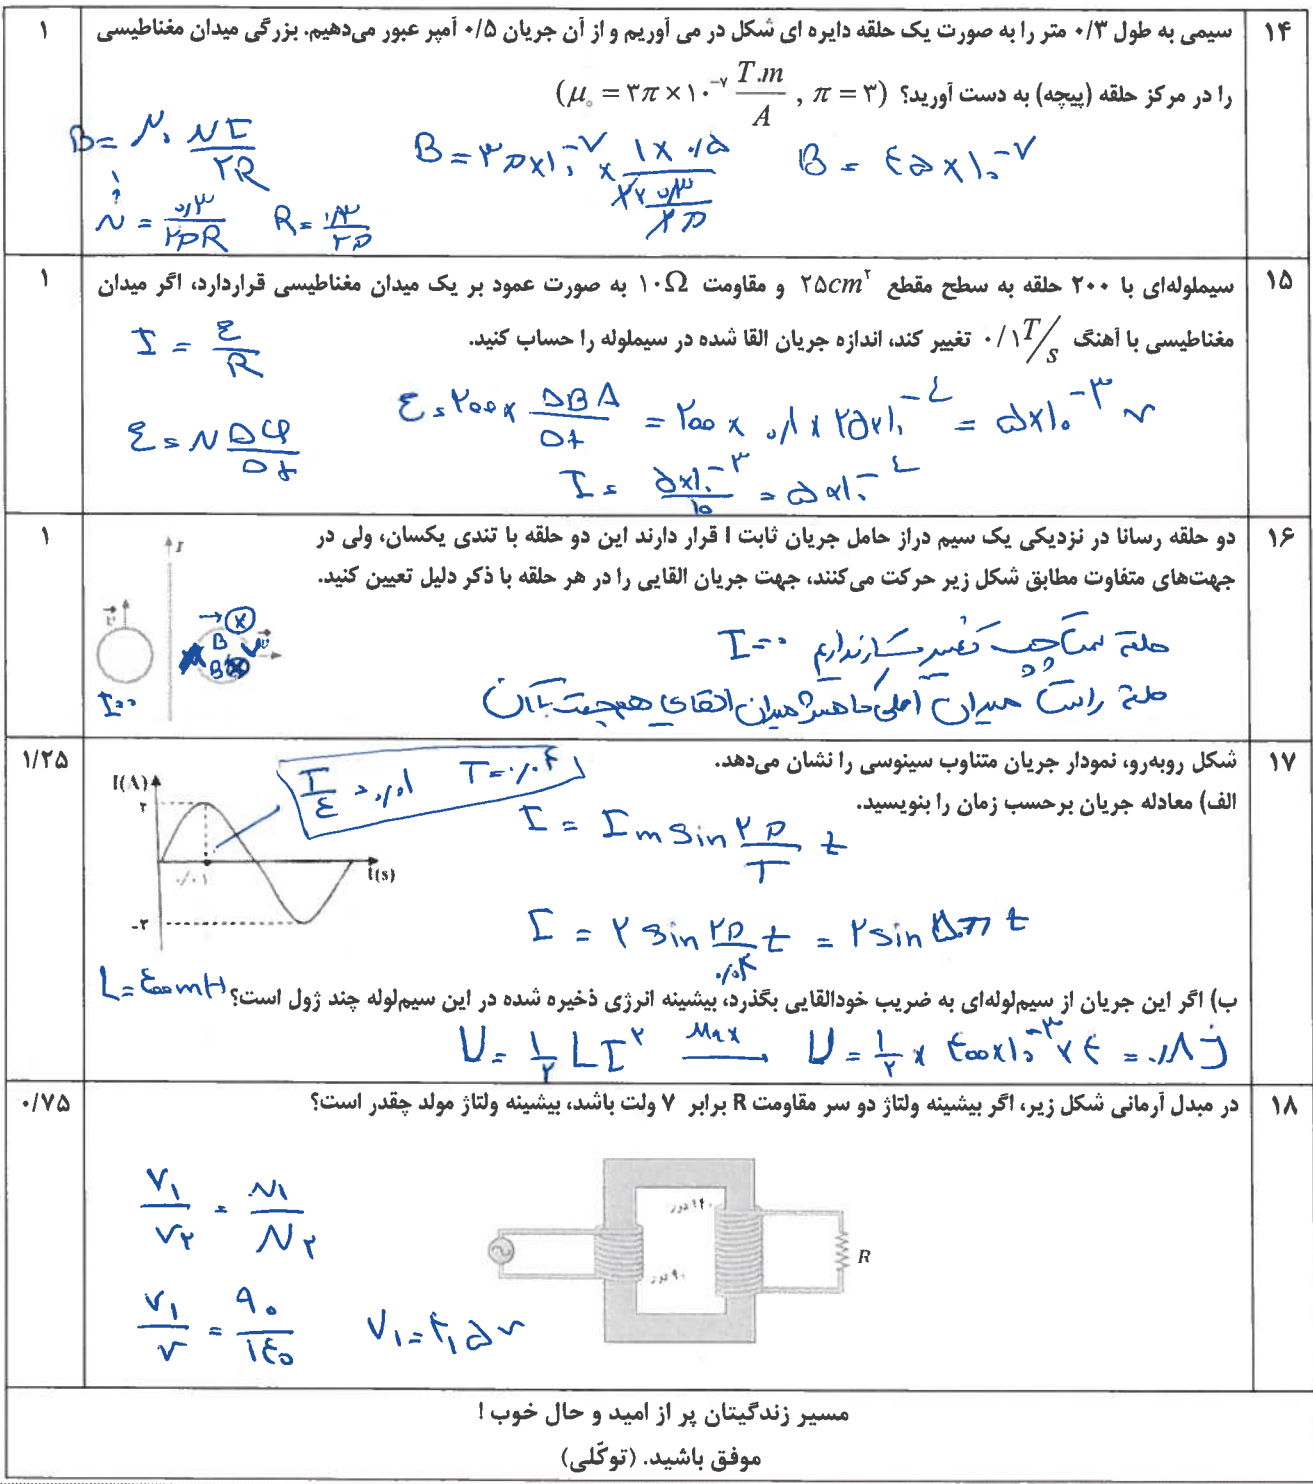 ۱۴ سیمی به طول ۰/۳ متر را به صورت یک حلقه دایره ای شکل در می آوریم و از آن جریان ۰/۵ آمپر عبور می‌دهیم. بزرگی میدان مغناطیسی ۱
را در مرکز حلقه (پیچه) به دست آورید؟ (μ₀ = ۳π × ۱۰⁻⁷ T.m/A , π = ۳)
B = μ₀ NI / ۲R
B = ۳π×۱۰⁻⁷ × (۱ × ۰/۵) / (۲ × ۰/۳ / ۲π)
B = ۴۵ × ۱۰⁻⁷
N = ۰/۳ / ۲πR
R = ۰/۳ / ۲π
۱۵ سیملوله‌ای با ۲۰۰ حلقه به سطح مقطع ۲۵cm² و مقاومت ۱۰Ω به صورت عمود بر یک میدان مغناطیسی قراردارد، اگر میدان ۱
مغناطیسی با آهنگ ۰/۱ T/s تغییر کند، اندازه جریان القا شده در سیملوله را حساب کنید.
I = ε / R
ε = ۲۰۰ × ΔBA / Δt = ۲۰۰ × ۰/۱ × ۲۵×۱۰⁻⁴ = ۵×۱۰⁻³ v
ε = N Δφ / Δt
I = ۵×۱۰⁻³ / ۱۰ = ۵×۱۰⁻⁴
۱۶ دو حلقه رسانا در نزدیکی یک سیم دراز حامل جریان ثابت I قرار دارند این دو حلقه با تندی یکسان، ولی در ۱
جهت‌های متفاوت مطابق شکل زیر حرکت می‌کنند، جهت جریان القایی را در هر حلقه با ذکر دلیل تعیین کنید.
I
v
B
B
v
I=۰
حلقه سمت چپ تغییر شار نداریم I=۰
حلقه راست میدان اصلی کاهش میدان القایی هم جهت با آن
۱۷ شکل روبه‌رو، نمودار جریان متناوب سینوسی را نشان می‌دهد. ۱/۲۵
الف) معادله جریان برحسب زمان را بنویسید.
I(A)
۲
۰/۰۱
t(s)
-۲
T/۴ = ۰/۰۱ T=۰/۰۴
I = Im Sin ۲π/T t
I = ۲ Sin ۲π/۰/۰۴ t = ۲ Sin ۵۰π t
L=۴۰۰mH
ب) اگر این جریان از سیم‌لوله‌ای به ضریب خودالقایی بگذرد، بیشینه انرژی ذخیره شده در این سیم‌لوله چند ژول است؟
U = ۱/۲ LI² Max U = ۱/۲ × ۴۰۰×۱۰⁻³ × ۴ = ۰/۸ j
۱۸ در مبدل آرمانی شکل زیر، اگر بیشینه ولتاژ دو سر مقاومت R برابر ۷ ولت باشد، بیشینه ولتاژ مولد چقدر است؟ ۰/۷۵
V₁/V₂ = N₁/N₂
۱۴۰ دور
۹۰ دور
R
V₁/۷ = ۹۰/۱۴۰
V₁=۴/۵ v
مسیر زندگیتان پر از امید و حال خوب !
موفق باشید. (توکّلی)